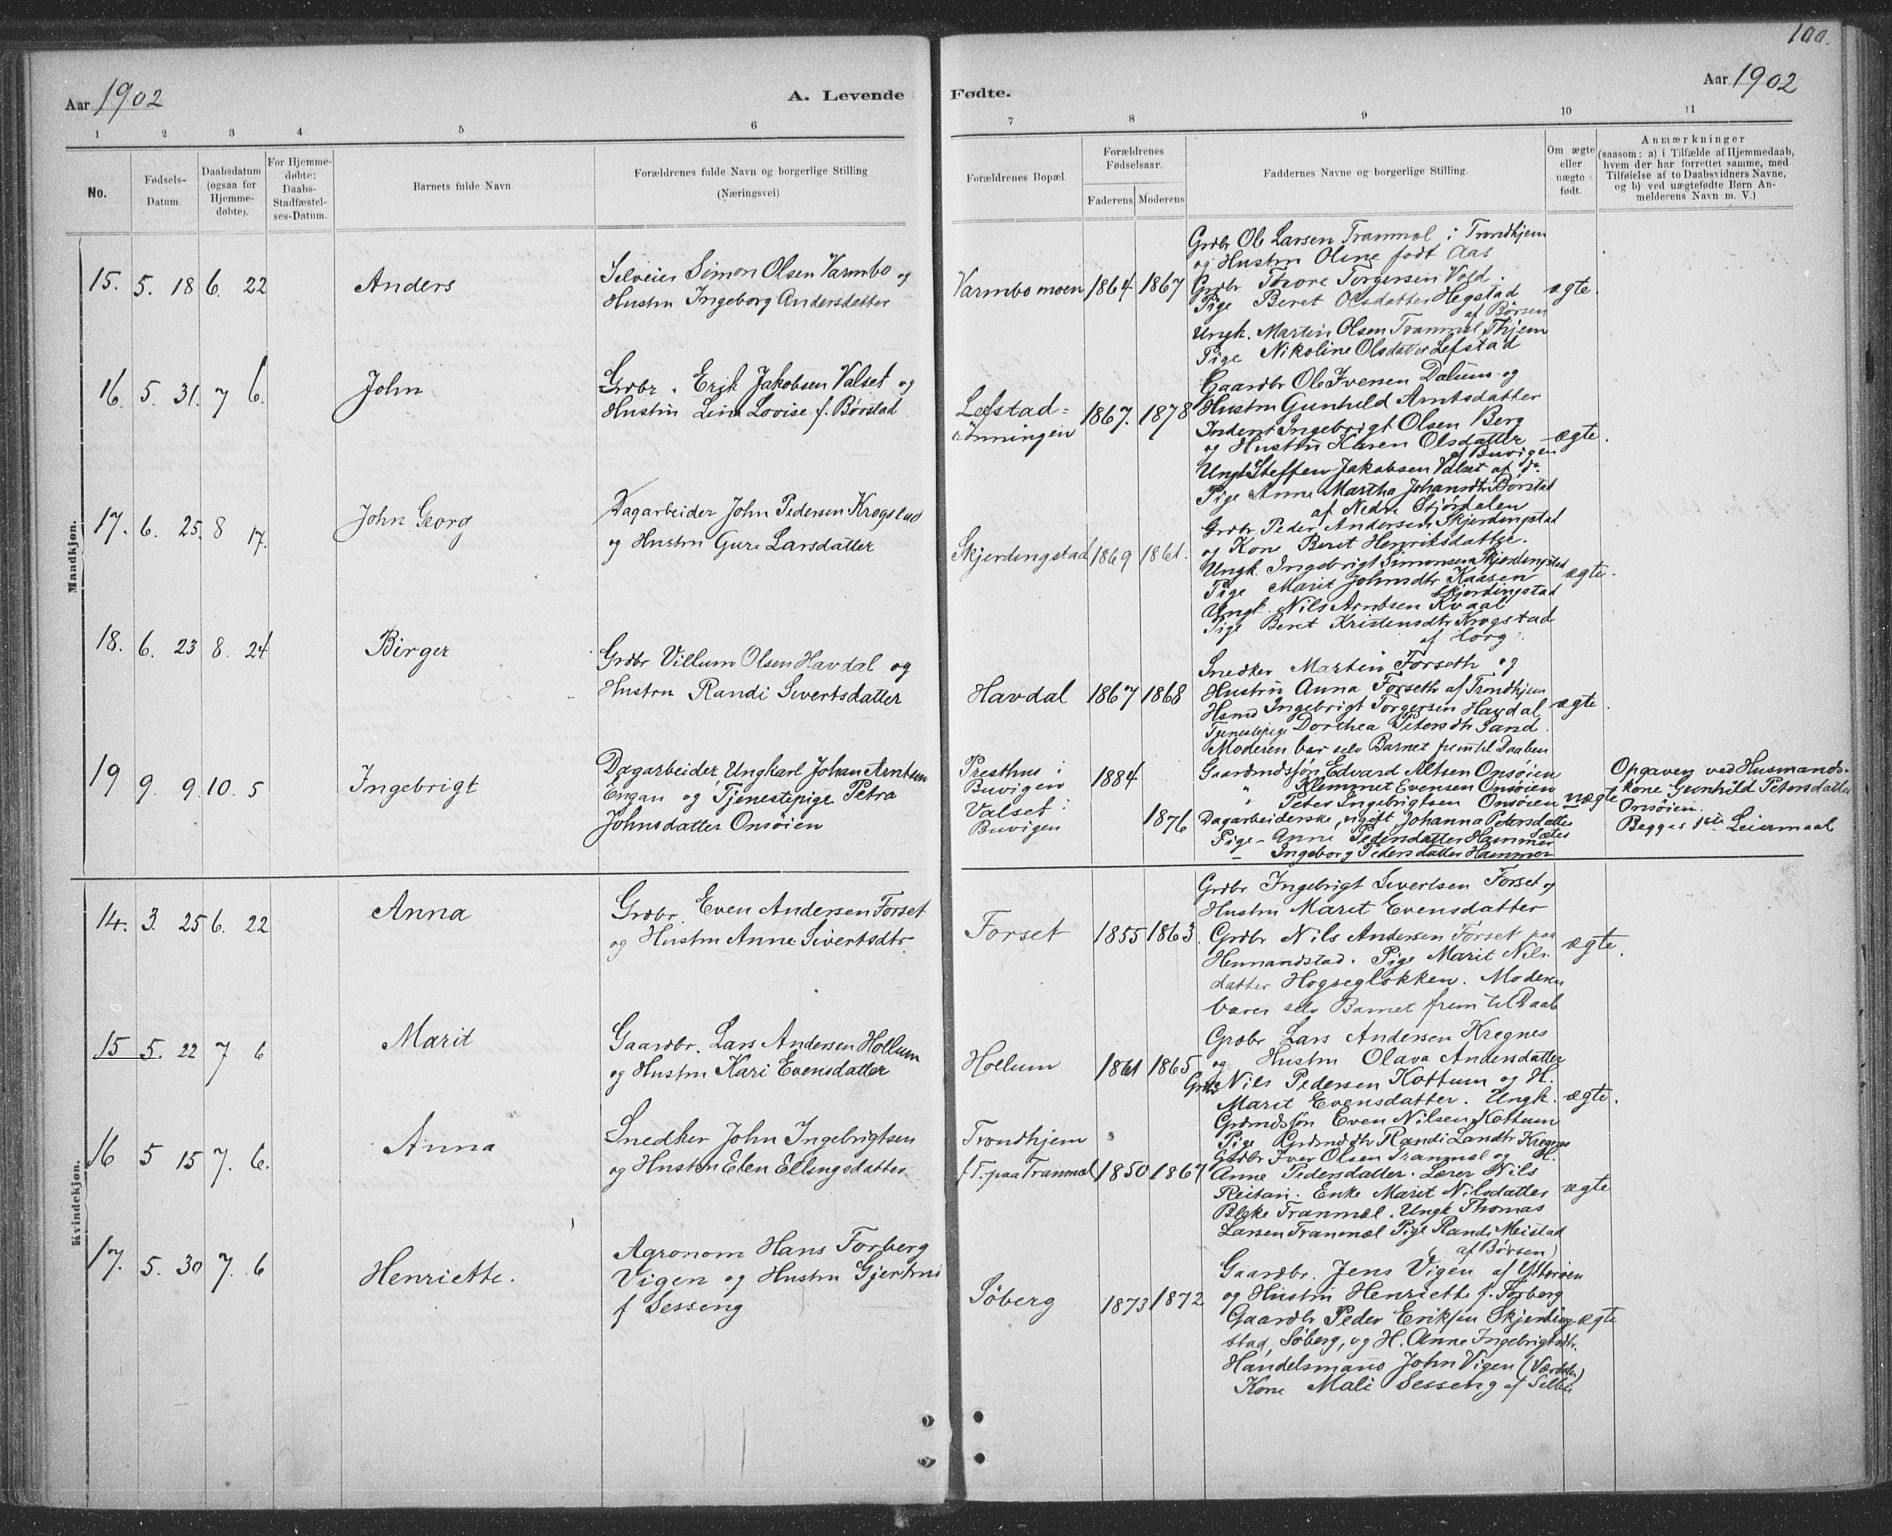 100.
Aar 1902
A. Levende Fødte.
Aar 1902
1 2 3 4 5 6 7 8 9 10 11
No.
Fødsels-
Datum.
Daabsdatum
(ogsaa for
Hjemme-
døbte).
For Hjemme-
døbte:
Daabs-
Stadfæstel-
ses-Datum.
Barnets fulde Navn
Forældrenes fulde Navn og borgerlige Stilling
(Næringsvei)
Forældrenes Bopæl.
Forældrenes
Fødselsaar.
Faderens
Moderens
Faddernes Navne og borgerlige Stilling.
Om ægte
eller
uægte
født.
Anmærkninger
(saasom: a) i Tilfælde af Hjemmedaab,
hvem der har forrettet samme, med
Tilføielse af to Daabsvidners Navne,
og b) ved uægtefødte Børn An-
melderens Navn m. V.)
Mandkjøn.
15. 5. 18 6. 22
Anders
Selveier Simon Olsen Varmbo og
Hustru Ingeborg Andersdatter
Varmbomoen 1864 1867
Grdbr Ole Larsen Tranmæl i Trondhjem
og Hustru Oline født Aas
Grdbr Thore Torgersen Vold.
Pige Beret Olsdatter Hegstad
af Børsen
Ungk. Martin Olsen Tranmæl, Thjem
Pige Nikoline Olsdatter Lefstad
ægte.
16. 5. 31. 7 6.
John
Grdbr. Erik Jakobsen Valset og
Hustru Lina Lovise f. Børstad
Lefstad=
rønningen
1867. 1878
Gaardbr Ole Iversen Dalum og
Hustru Gunhild Arntsdatter
Inderst Ingebrigt Olsen Berg
og Hustru Karen Olsdatter
af Buvigen
Ungk Steffen Jakobsen Valset af do
Pige Anne Martha Johansdtr Børstad
af Nedre Stjørdalen
ægte.
17. 6. 25. 8 17.
John Georg
Dagarbeider John Pedersen Krogstad
og Hustru Gure Larsdatter
Skjerdingstad 1869 1861.
Grdbr Peder Andersen Skjerdingstad
og Kone Beret Henriksdatter.
Ungk. Ingebrigt Simonsen Skjerdingstad
Pige Marit Johnsdtr Kaasen
Skjerdingstad
Ungk. Nils Arntsen Kvaal
Pige Beret Kristensdtr Krogstad
af Horg.
ægte.
18. 6. 23 8. 24
Birger
Grdbr Villum Olsen Havdal og
Hustru Randi Sivertsdatter
Havdal 1867 1868
Snedker Martin Forseth og
Hustru Anna Forseth af Trondhjem
Hsmd Ingebrigt Torgersen Havdal
Tjenestepige Dorthea Petersdtr Sand.
Moderen bar selv Barnet frem til Daaben
ægte.
19 9. 9. 10. 5
Ingebrigt
Dagarbeider, Ungkarl Johan Arntsen
Engan og Tjenestepige Petra
Johnsdatter Onsøien
Presthus i
Buvigen
Valset i
Buvigen
1884
1876
Gaardmdssøn Edvard Altsen Onsøien
" Klemmet Evensen Onsøien
" Peter Ingebrigtsen Onsøien
Dagarbeiderske, ugift Johanna Petersdatter
Sætes
Pige - Anne Pedersdatter Hammer
- Ingeborg Pedersdatter Hammer
uægte
Opgaven ved Husmands-
kone Gunhild Petersdatter
Onsøien.
Begges 1ste Leiermaal
Kvindekjøn.
14. 3. 25 6. 22
Anna
Grdbr. Even Andersen Forset
og Hustru Anne Sivertsdtr
Forset 1855 1863.
Grdbr Ingebrigt Sivertsen Forset og
Hustru Marit Evensdatter
Grdbr Nils Andersen Forset paa
Hennandstad. Pige Marit Nils-
datter Hogsegløkken. Moderen
barer selv Barnet frem til Daab
ægte.
15 5. 22 7 6
Marit
Gaardbr. Lars Andersen Hollum
og Hustru Kari Evensdatter
Hollum 1861 1865
Grdbr Lars Andersen Kregnes
og Hustru Olava Andersdatter
Grdbr Nils Pedersen Kottum og H.
Marit Evensdatter. Ungk.
Grdmdssøn Even Nilsen Kottum
Pige Grdmddtr Randi Landtr Kregnes
ægte.
16 5 15 7. 6.
Anna
Snedker John Ingebrigtsen
og Hustru Elen Ellingsdatter
Trondhjem
f. T. paa Tranmæl 1850 1867
Grdbr Iver Olsen Tranmæl og H.
Anne Pedersdatter. Lærer Nils
Reitan. Enke Marit Nilsdatter
Bleke Tranmæl. Ungk Thomas
Larsen Tranmæl Pige Randi Meistad
(af Børsen)
ægte
17. 5. 30 7. 6
Henriette.
Agronom Hans Forberg
Vigen og Hustru Gjertrud
f Sesseng
Søberg 1873 1872
Gaardbr. Jens Vigen af Ytterøen
og Hustru Henriette f. Forberg
Gaardbr Peder Eriksen Skjerding-
stad, Søberg, og H. Anne Ingebrigtsdtr.
Handelsmand John Vigen (Værdalen)
Kone Mali Sesseng af Selbu
ægte